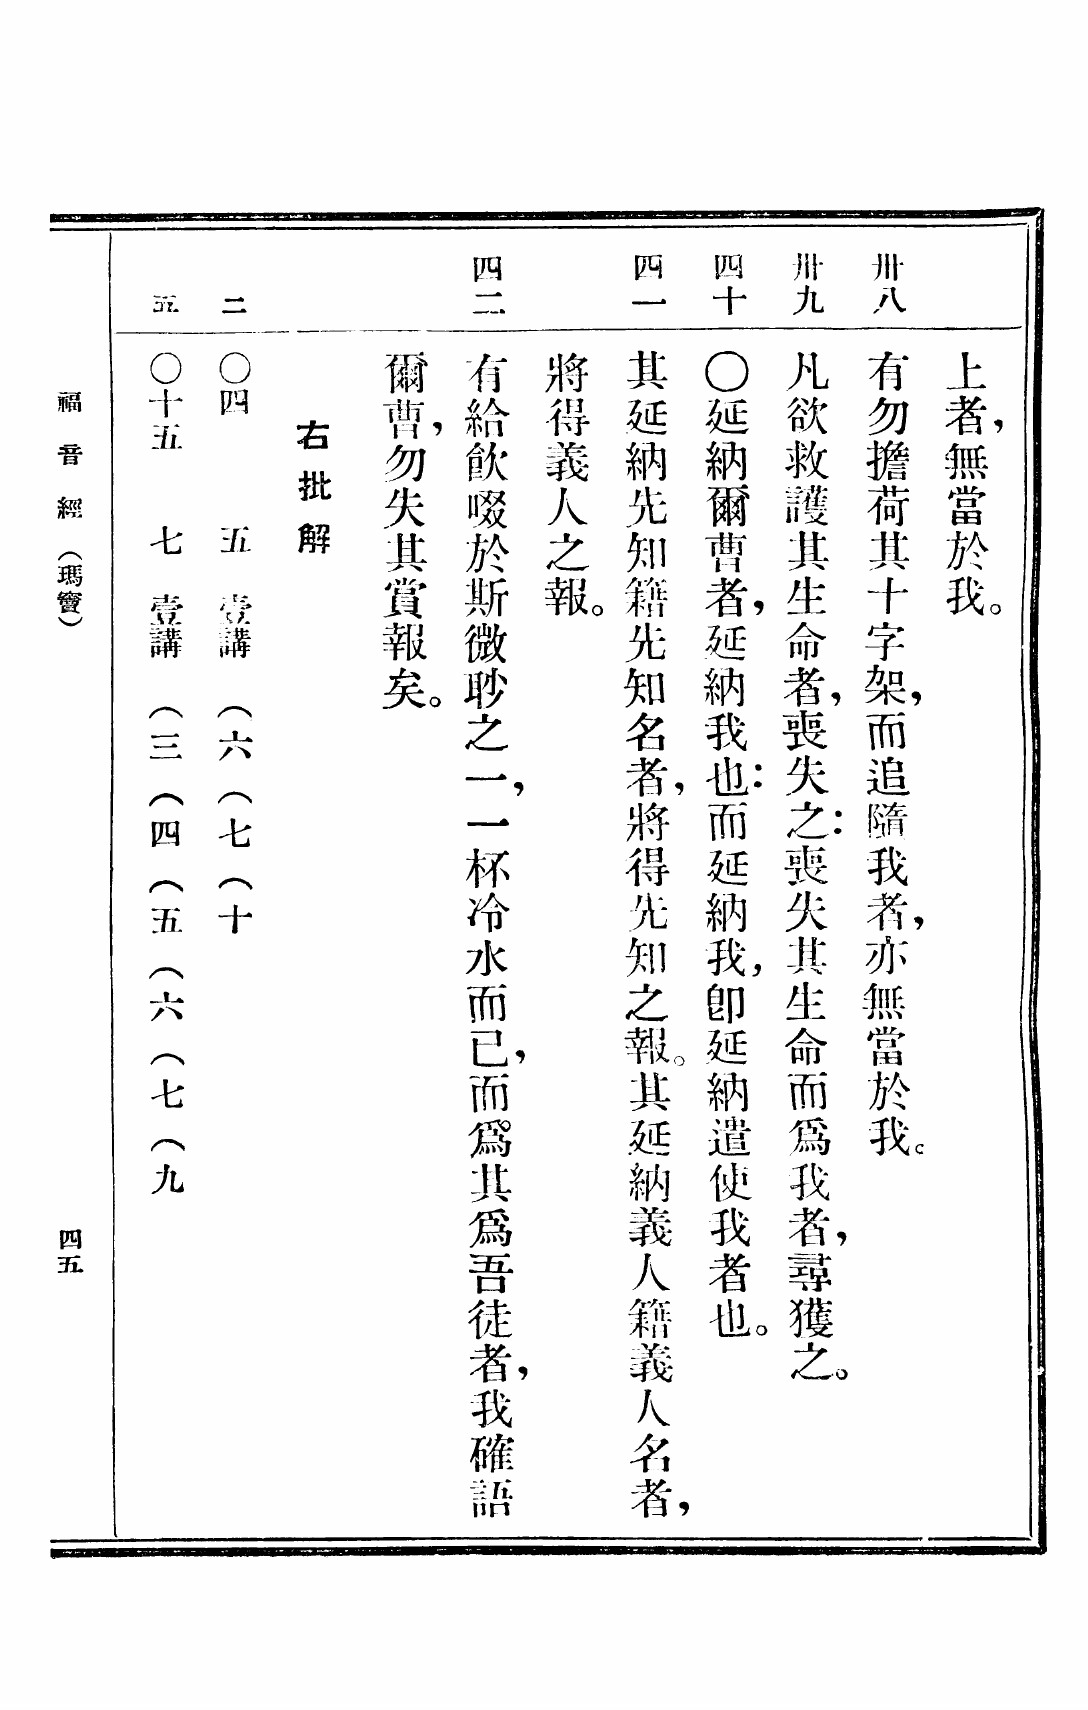 上者，無當於我。
卅八 有勿擔荷其十字架，而追隨我者，亦無當於我。
卅九 凡欲救護其生命者，喪失之：喪失其生命而爲我者，尋獲之。
四十 〇延納爾曹者，延納我也：而延納我，卽延納遣使我者也。
四一 其延納先知籍先知名者，將得先知之報。其延納義人籍義人名者，
將得義人之報。
四二 有給飮啜於斯微眇之一，一杯冷水而已，而爲其爲吾徒者，我確語
爾曹，勿失其賞報矣。
右批解
二 〇四 五 壹講 （六（七（十
五 〇十五 七 壹講 （三（四（五（六（七（九
福音經（瑪竇） 四五